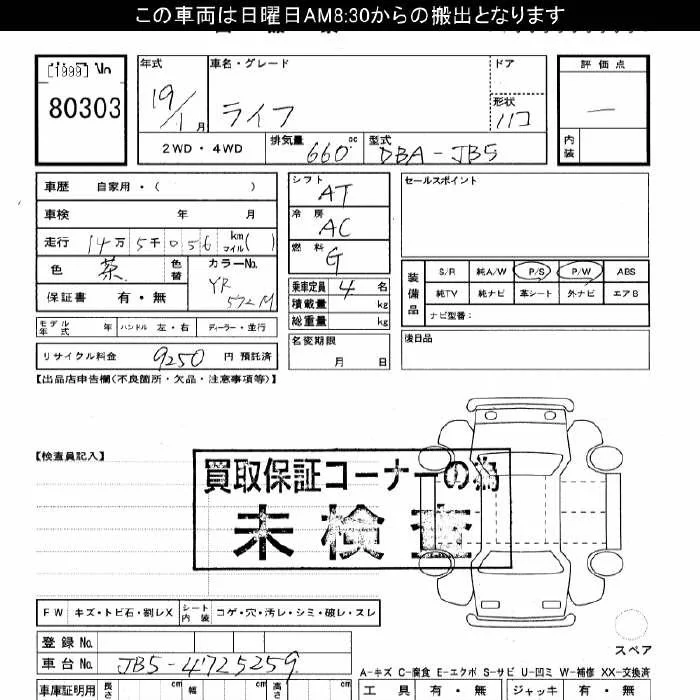 この車両は日曜日AM8:30からの搬出となります
[1999] No
80303
年式
車名・グレード
ドア
評価点
19/1月
ライフ
形状
ハコ
一
2WD・4WD
排気量
660cc
型式
DBA-JB5
内装
車歴 自家用・( )
シフト
AT
セールスポイント
車検 年 月
冷房
AC
走行 14万5千056 km マイル( )
燃料
G
色 茶 色替
カラーNo.
YR
572M
乗車定員 4 名
装備品
S/R 純A/W P/S P/W ABS
保証書 有・無
積載量 kg
純TV 純ナビ 革シート 外ナビ エアB
総重量 kg
ナビ型番:
モデル年式 年 ハンドル 左・右 ディーラー・並行
名変期限
月 日
後日品
リサイクル料金 9250 円 預託済
【出品店申告欄(不良箇所・欠品・注意事項等)】
【検査員記入】
買取保証コーナーの為
未検査
FW キズ・トビ石・割レX シート内装 コゲ・穴・汚レ・シミ・破レ・スレ
登録No.
スペア
車台No. JB5-4725259
A-キズ C-腐食 E-エクボ S-サビ U-凹ミ W-補修 XX-交換済
車庫証明用 長さ cm 幅 cm 高さ cm
工具 有・無 ジャッキ 有・無